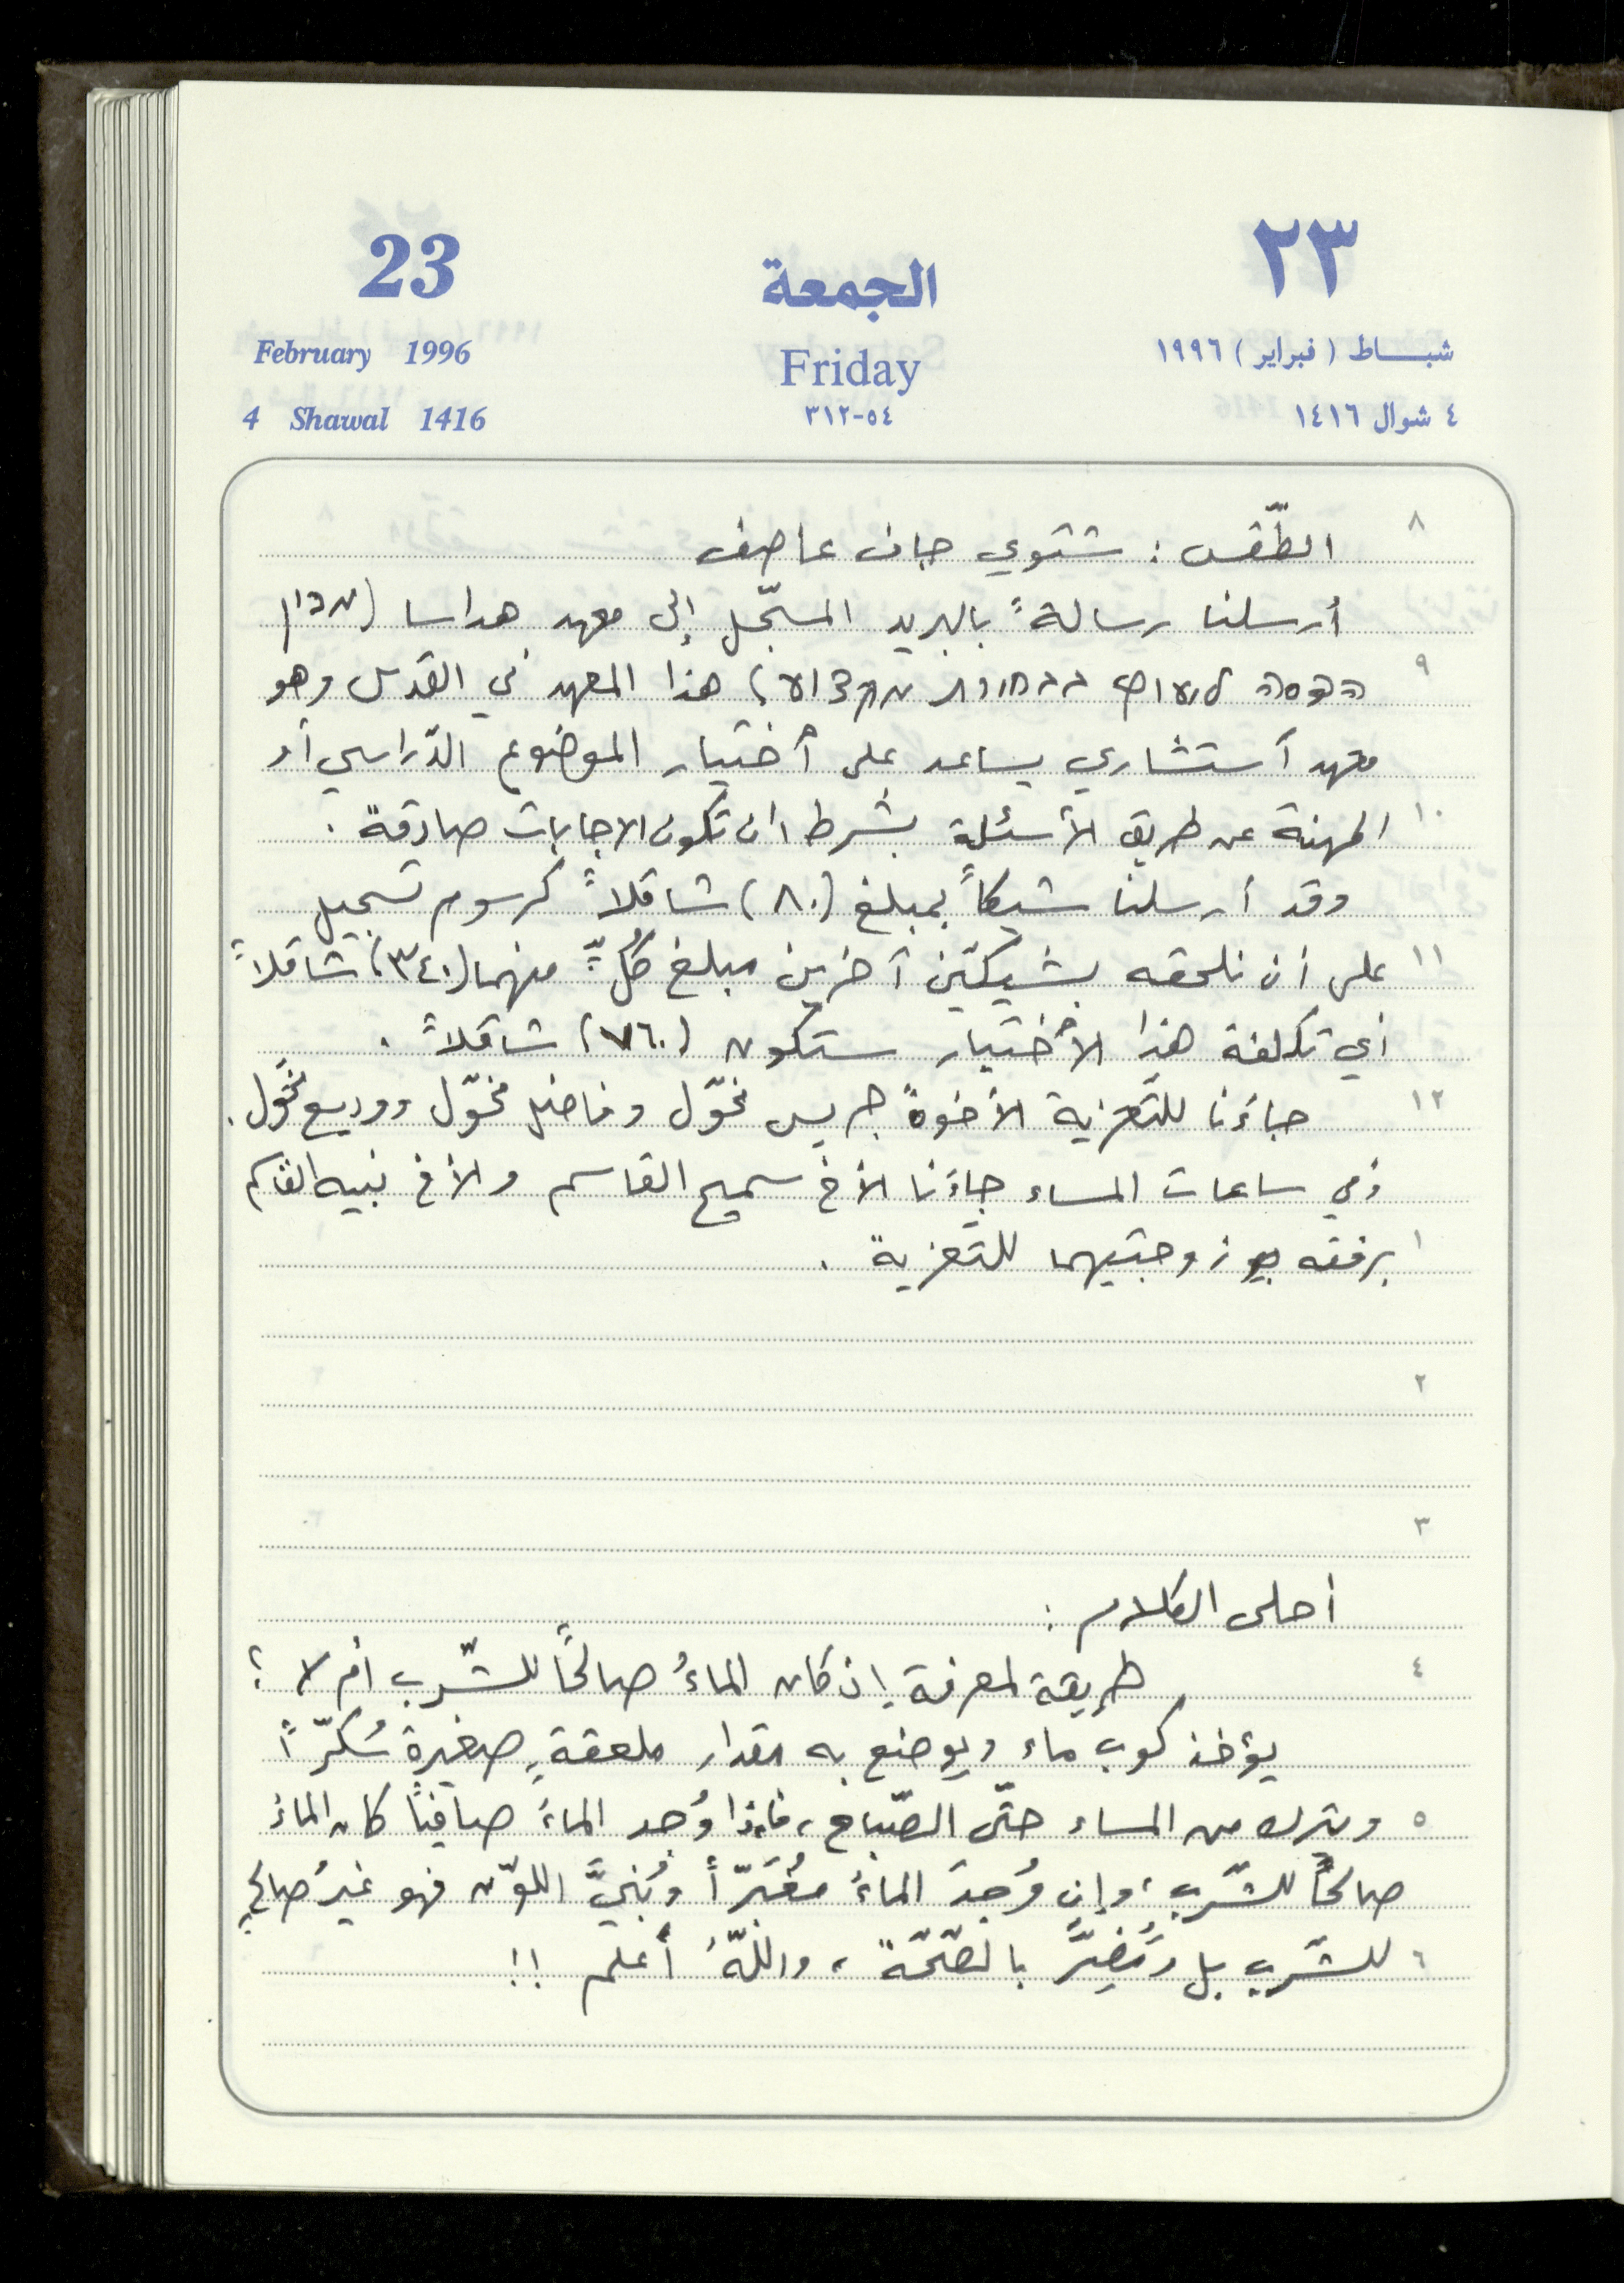 23
الجمعة
٢٣
February 1996
Friday
شباط (فبراير) ١٩٩٦
4 Shawal 1416
٥٤-٣١٢
٤ شوال ١٤١٦
٨
الطّقس: شتوي جاف عاصف
أرسلنا رسالةً بالبريد المسجّل إلى معهد هداسا (מכון
٩
הדסה לייעוץ בבחירת מקצוע) هذا المعهد في القدس وهو
معهد آستشاري يساعد على آختيار الموضوع الدّراسي أو
١٠
المهنة عن طريق الأسئلة بشرط ان تكون الاجابات صادقة.
وقد أرسلنا شيكاً بمبلغ (٨٠) شاقلاً كرسوم تسجيل
١١
على أن نلحقه بشيكّين آخرين مبلغ كُلٍّ منهما (٣٤٠) شاقلاً
أي تكلفة هذا الآختيار ستكون (٧٦٠) شاقلاً.
١٢
جاءَنا للتّعزية الأخوة جريس نخّول وفاضل نخّول ووديع نخّول.
وفي ساعات المساء جاءَنا الأخ سميح القاسم والأخ نبيه القاسم
١
برفقه زوجتيهما للتعزية.
٢
٣
أحلى الكلام:
٤
طريقة لمعرفة إن كان الماءُ صالحًا للشّرب أم لا؟
يؤخذ كوب ماء ويوضع به مقدار ملعقةٍ صغيرة سُكّرًا
٥
ويترك من المساء حتّى الصّباح، فإذا وُجد الماءُ صافيًا كان الماءُ
صالحًا للشّرب، وإن وُجدَ الماءُ مُغبّرًا وبُنيَّ اللوّن فهو غيرُ صالحٍ
٦
للشّرب بل ومُضِرٌّ بالصّحّة، واللهُ أعلم !!